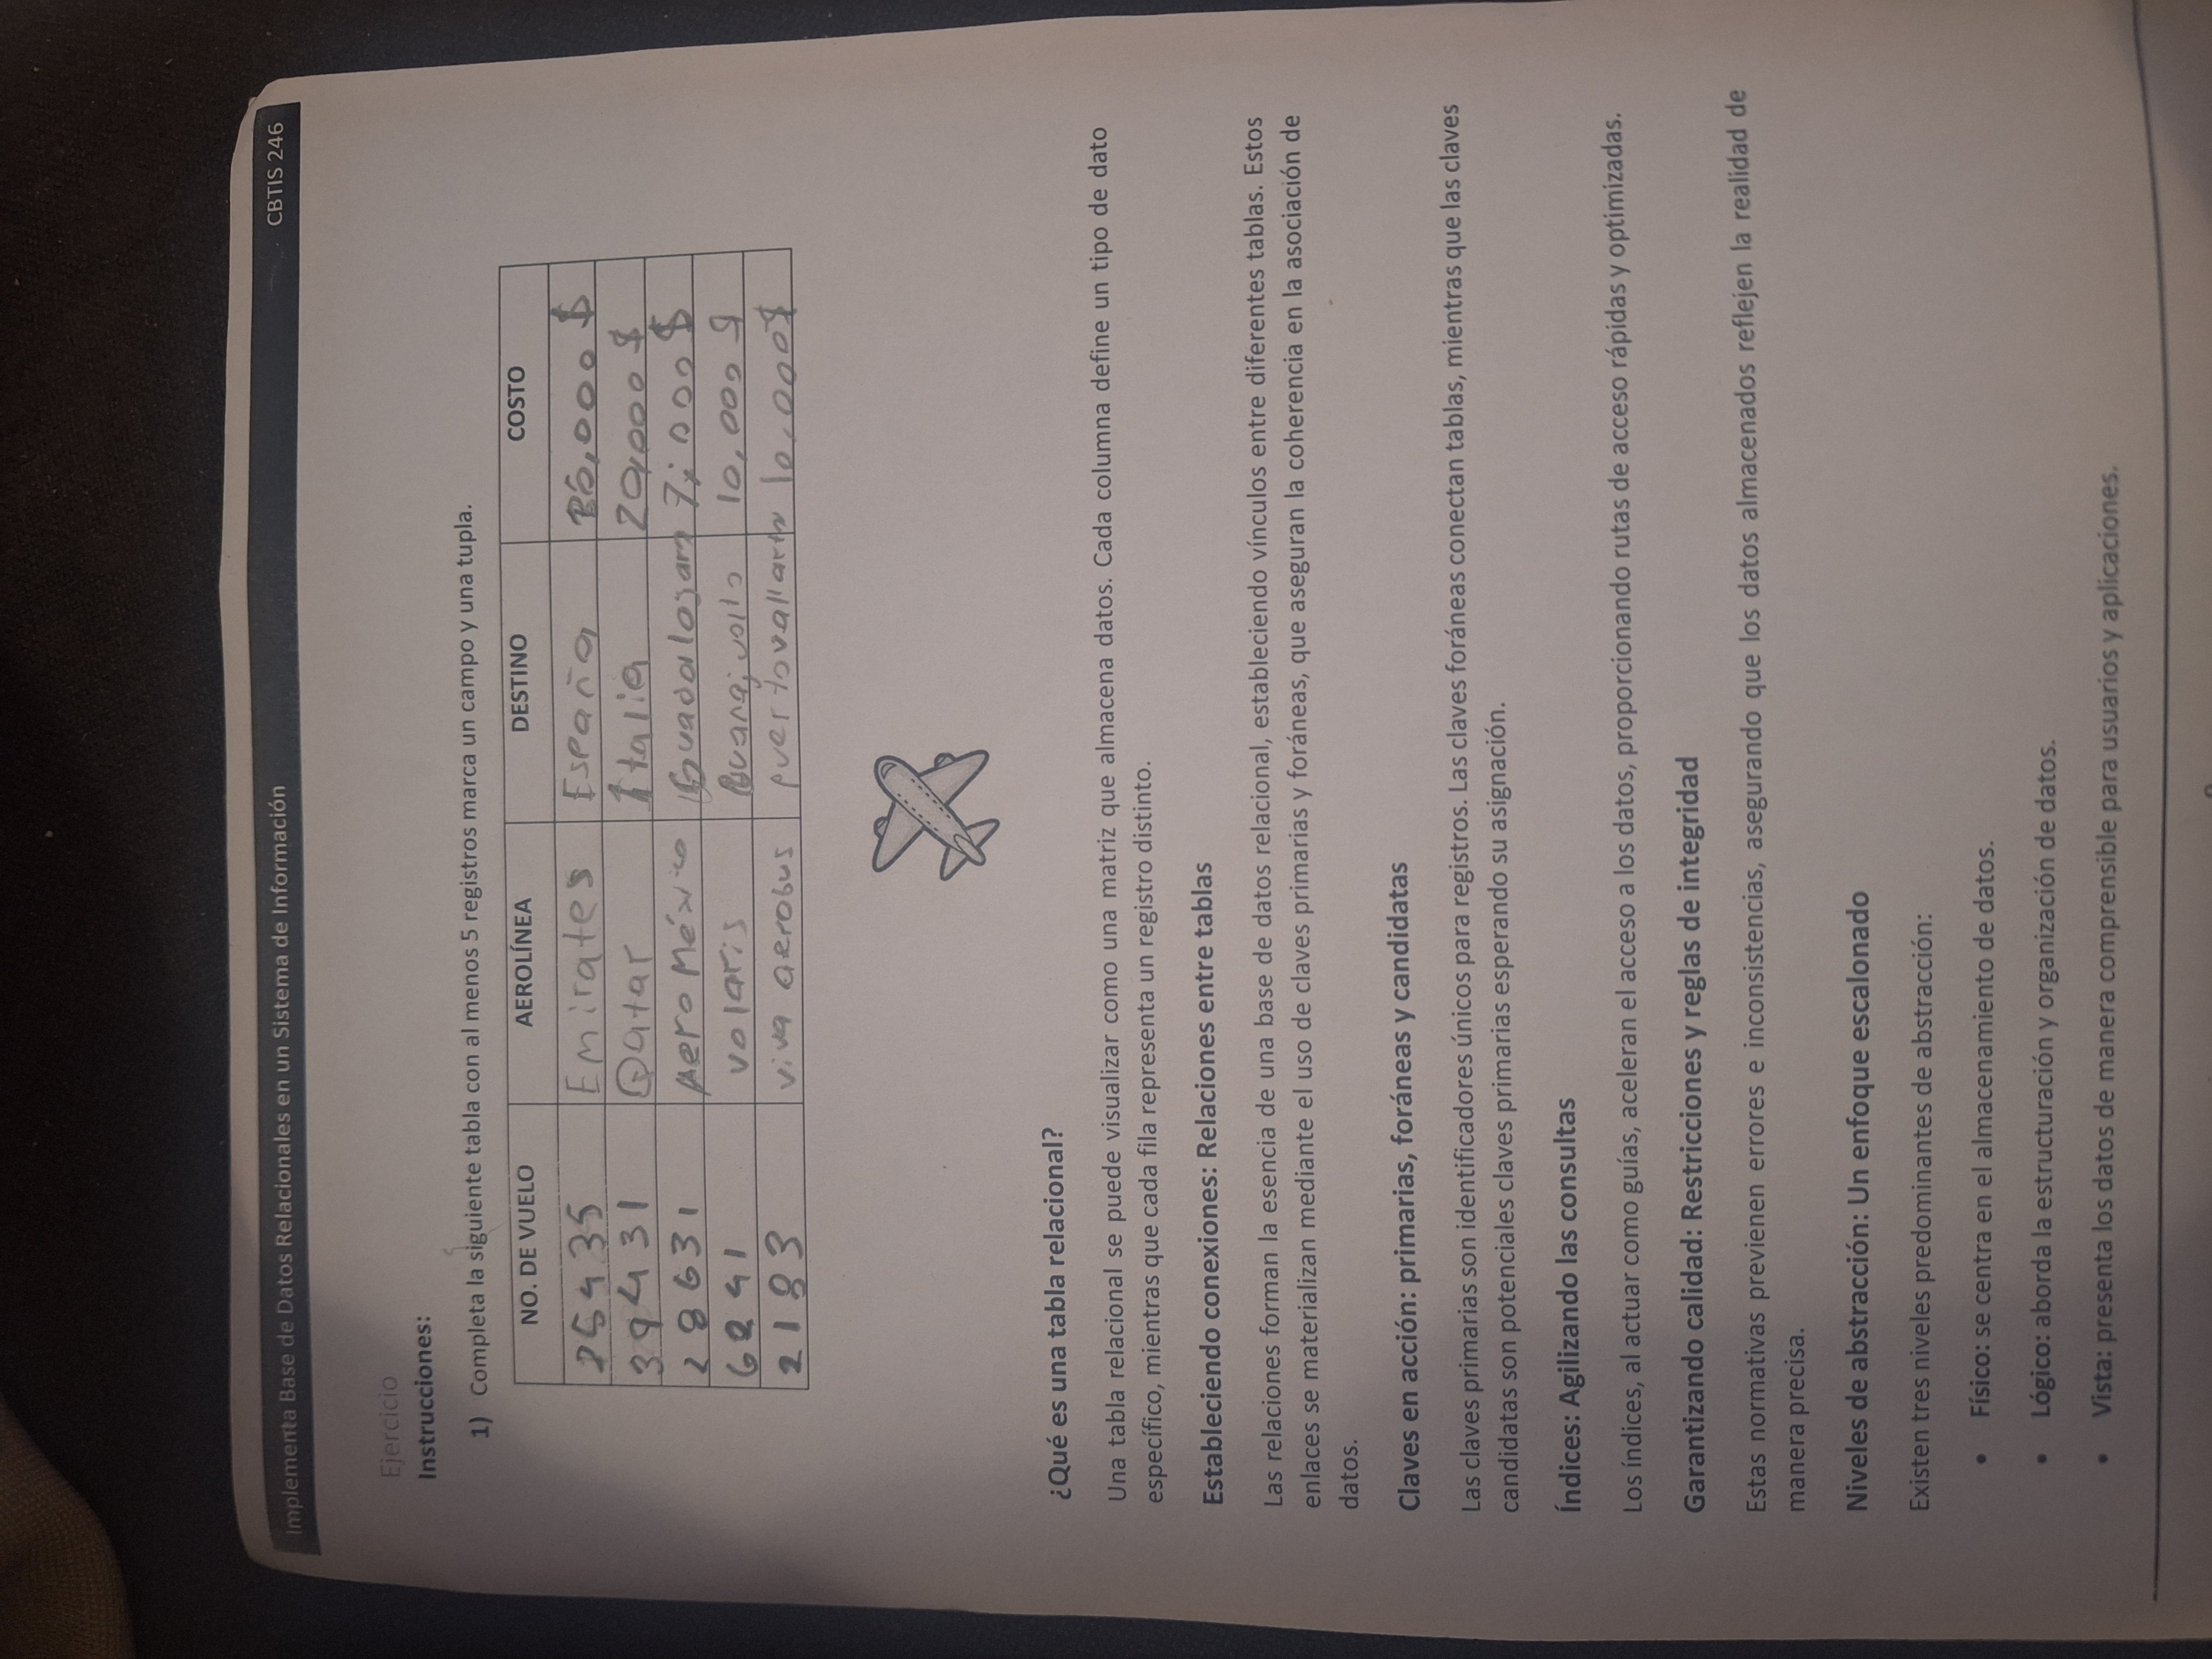 Implementa Base de Datos Relacionales en un Sistema de Información CBTIS 246
Ejercicio
Instrucciones:
1) Completa la siguiente tabla con al menos 5 registros marca un campo y una tupla.
NO. DE VUELO AEROLÍNEA DESTINO COSTO
25435 Emirates España 26,000 $
39431 Qatar Italia 20,000 $
28631 AeroMéxico 7,000 $
6241 volaris 10,000 $
2183 viva aerobus puertovallarta 10,000$
¿Qué es una tabla relacional?
Una tabla relacional se puede visualizar como una matriz que almacena datos. Cada columna define un tipo de dato
específico, mientras que cada fila representa un registro distinto.
Estableciendo conexiones: Relaciones entre tablas
Las relaciones forman la esencia de una base de datos relacional, estableciendo vínculos entre diferentes tablas. Estos
enlaces se materializan mediante el uso de claves primarias y foráneas, que aseguran la coherencia en la asociación de
datos.
Claves en acción: primarias, foráneas y candidatas
Las claves primarias son identificadores únicos para registros. Las claves foráneas conectan tablas, mientras que las claves
candidatas son potenciales claves primarias esperando su asignación.
Índices: Agilizando las consultas
Los índices, al actuar como guías, aceleran el acceso a los datos, proporcionando rutas de acceso rápidas y optimizadas.
Garantizando calidad: Restricciones y reglas de integridad
Estas normativas previenen errores e inconsistencias, asegurando que los datos almacenados reflejen la realidad de
manera precisa.
Niveles de abstracción: Un enfoque escalonado
Existen tres niveles predominantes de abstracción:
• Físico: se centra en el almacenamiento de datos.
• Lógico: aborda la estructuración y organización de datos.
• Vista: presenta los datos de manera comprensible para usuarios y aplicaciones.